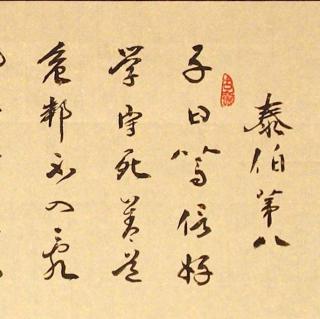 泰伯第八
子曰篤信好
學守死善道
危邦不入亂